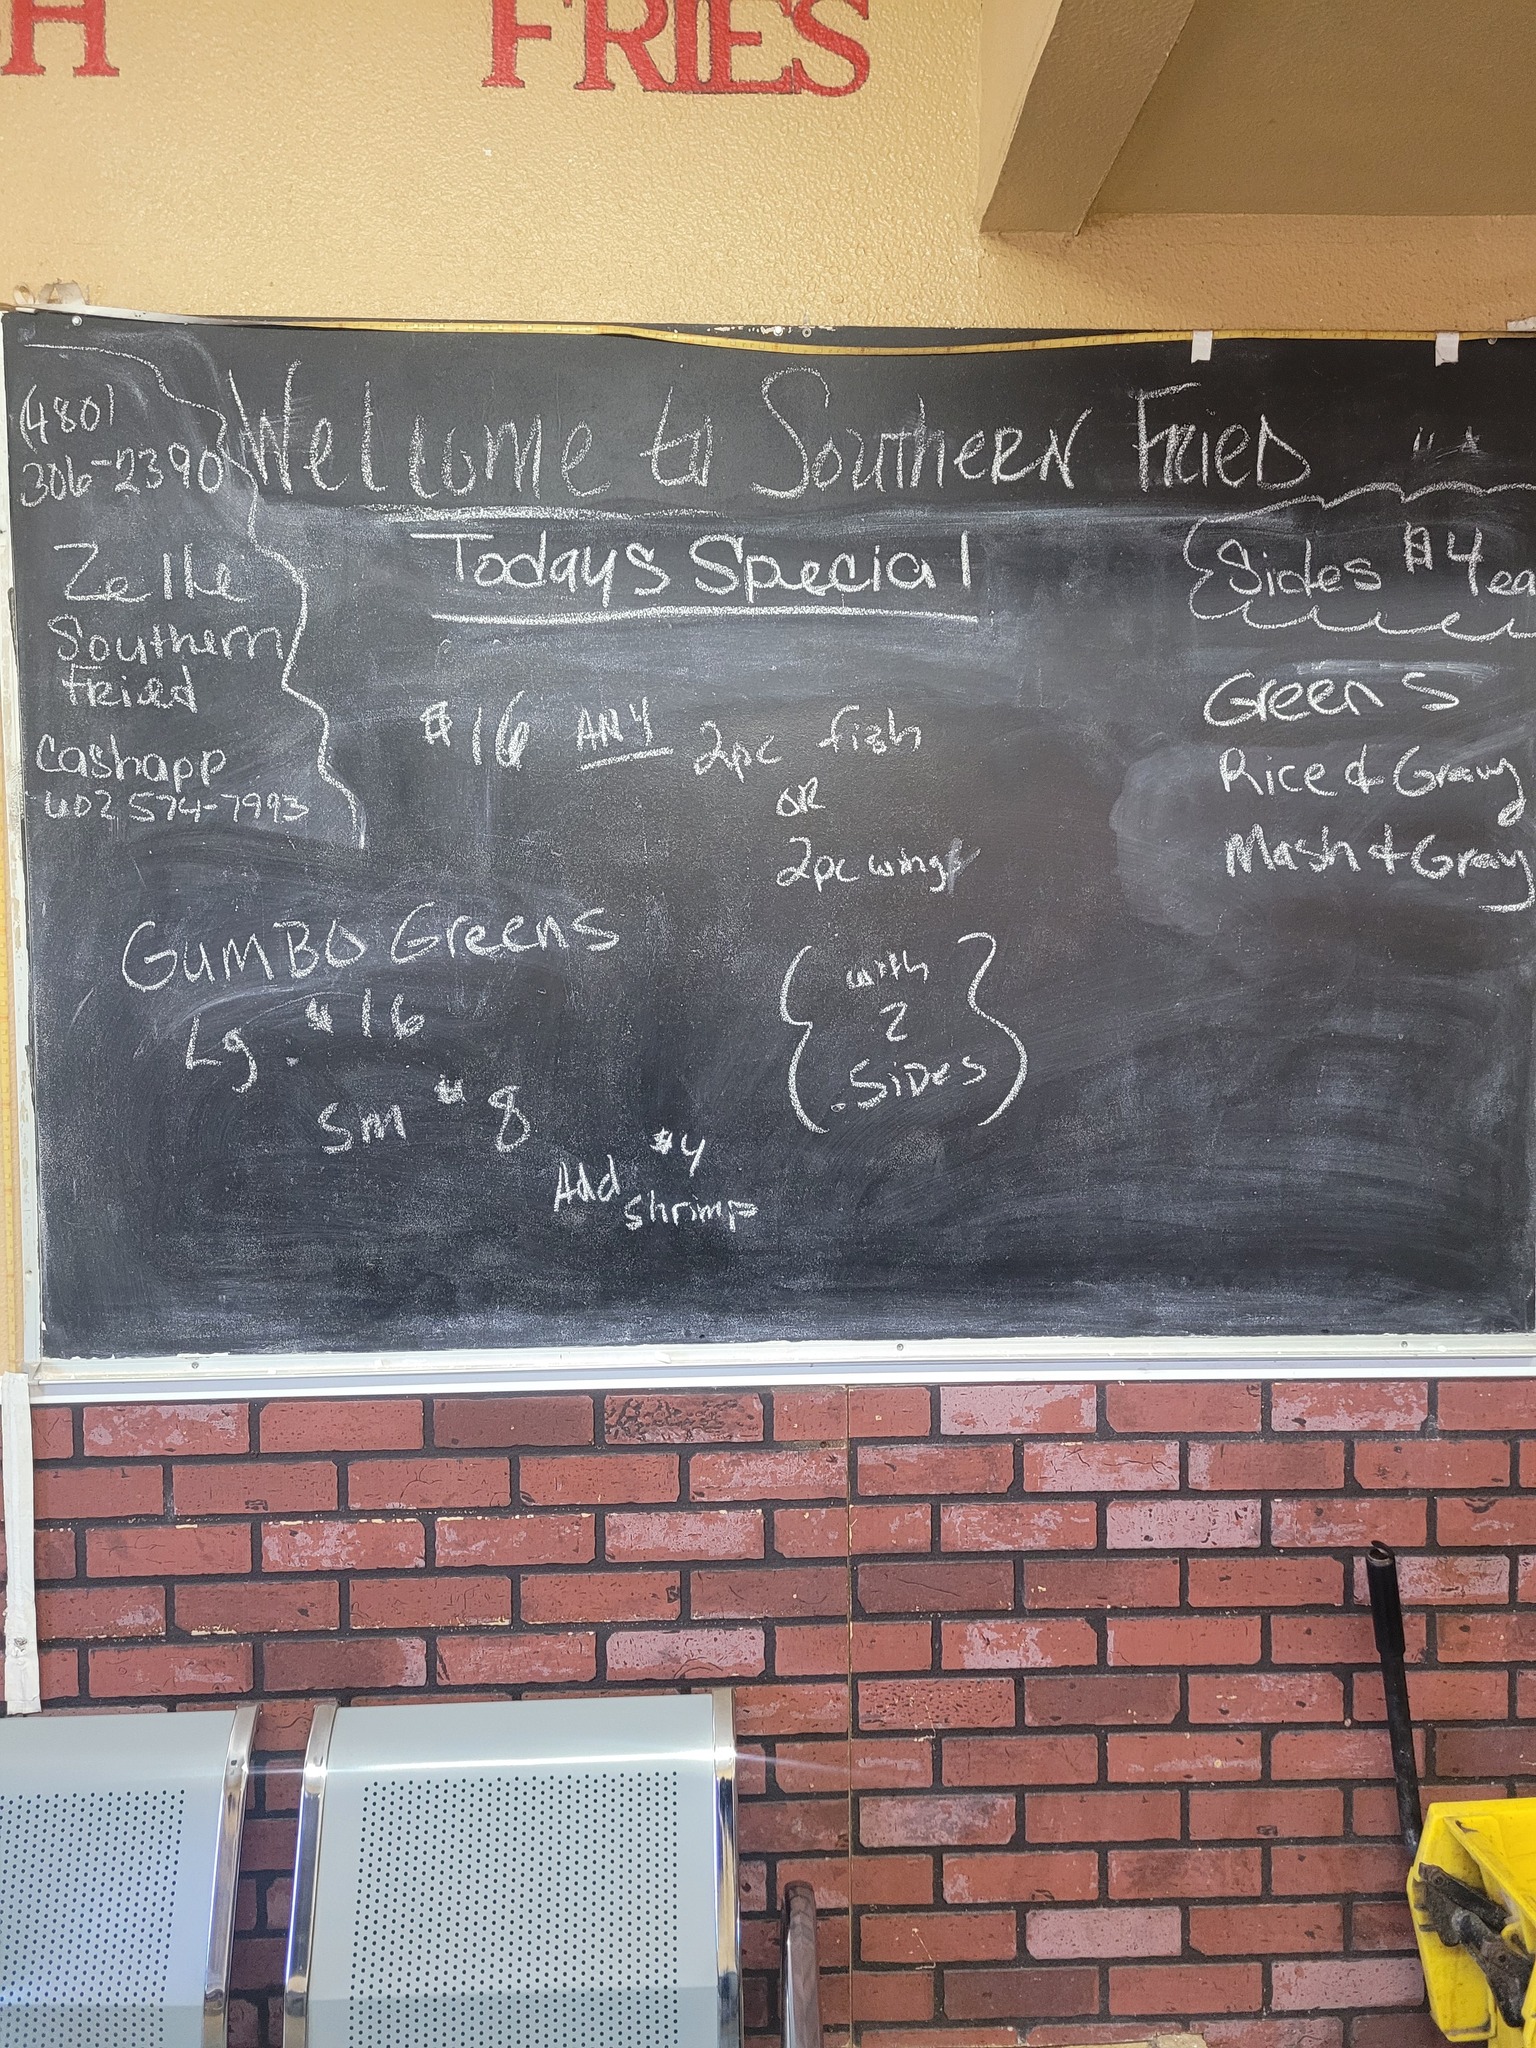 H FRIES
(480)
306-2390
Zelle
Southern
Fried
Cashapp
602 574-7993
Welcome to Southern Fried
Todays Special
$16 ANY 2pc fish
OR
2pc wings
{with
2
Sides}
GUMBO Greens
Lg. $16
Sm $8
Add $4
shrimp
Sides $4 ea
Greens
Rice & Gravy
Mash & Gravy